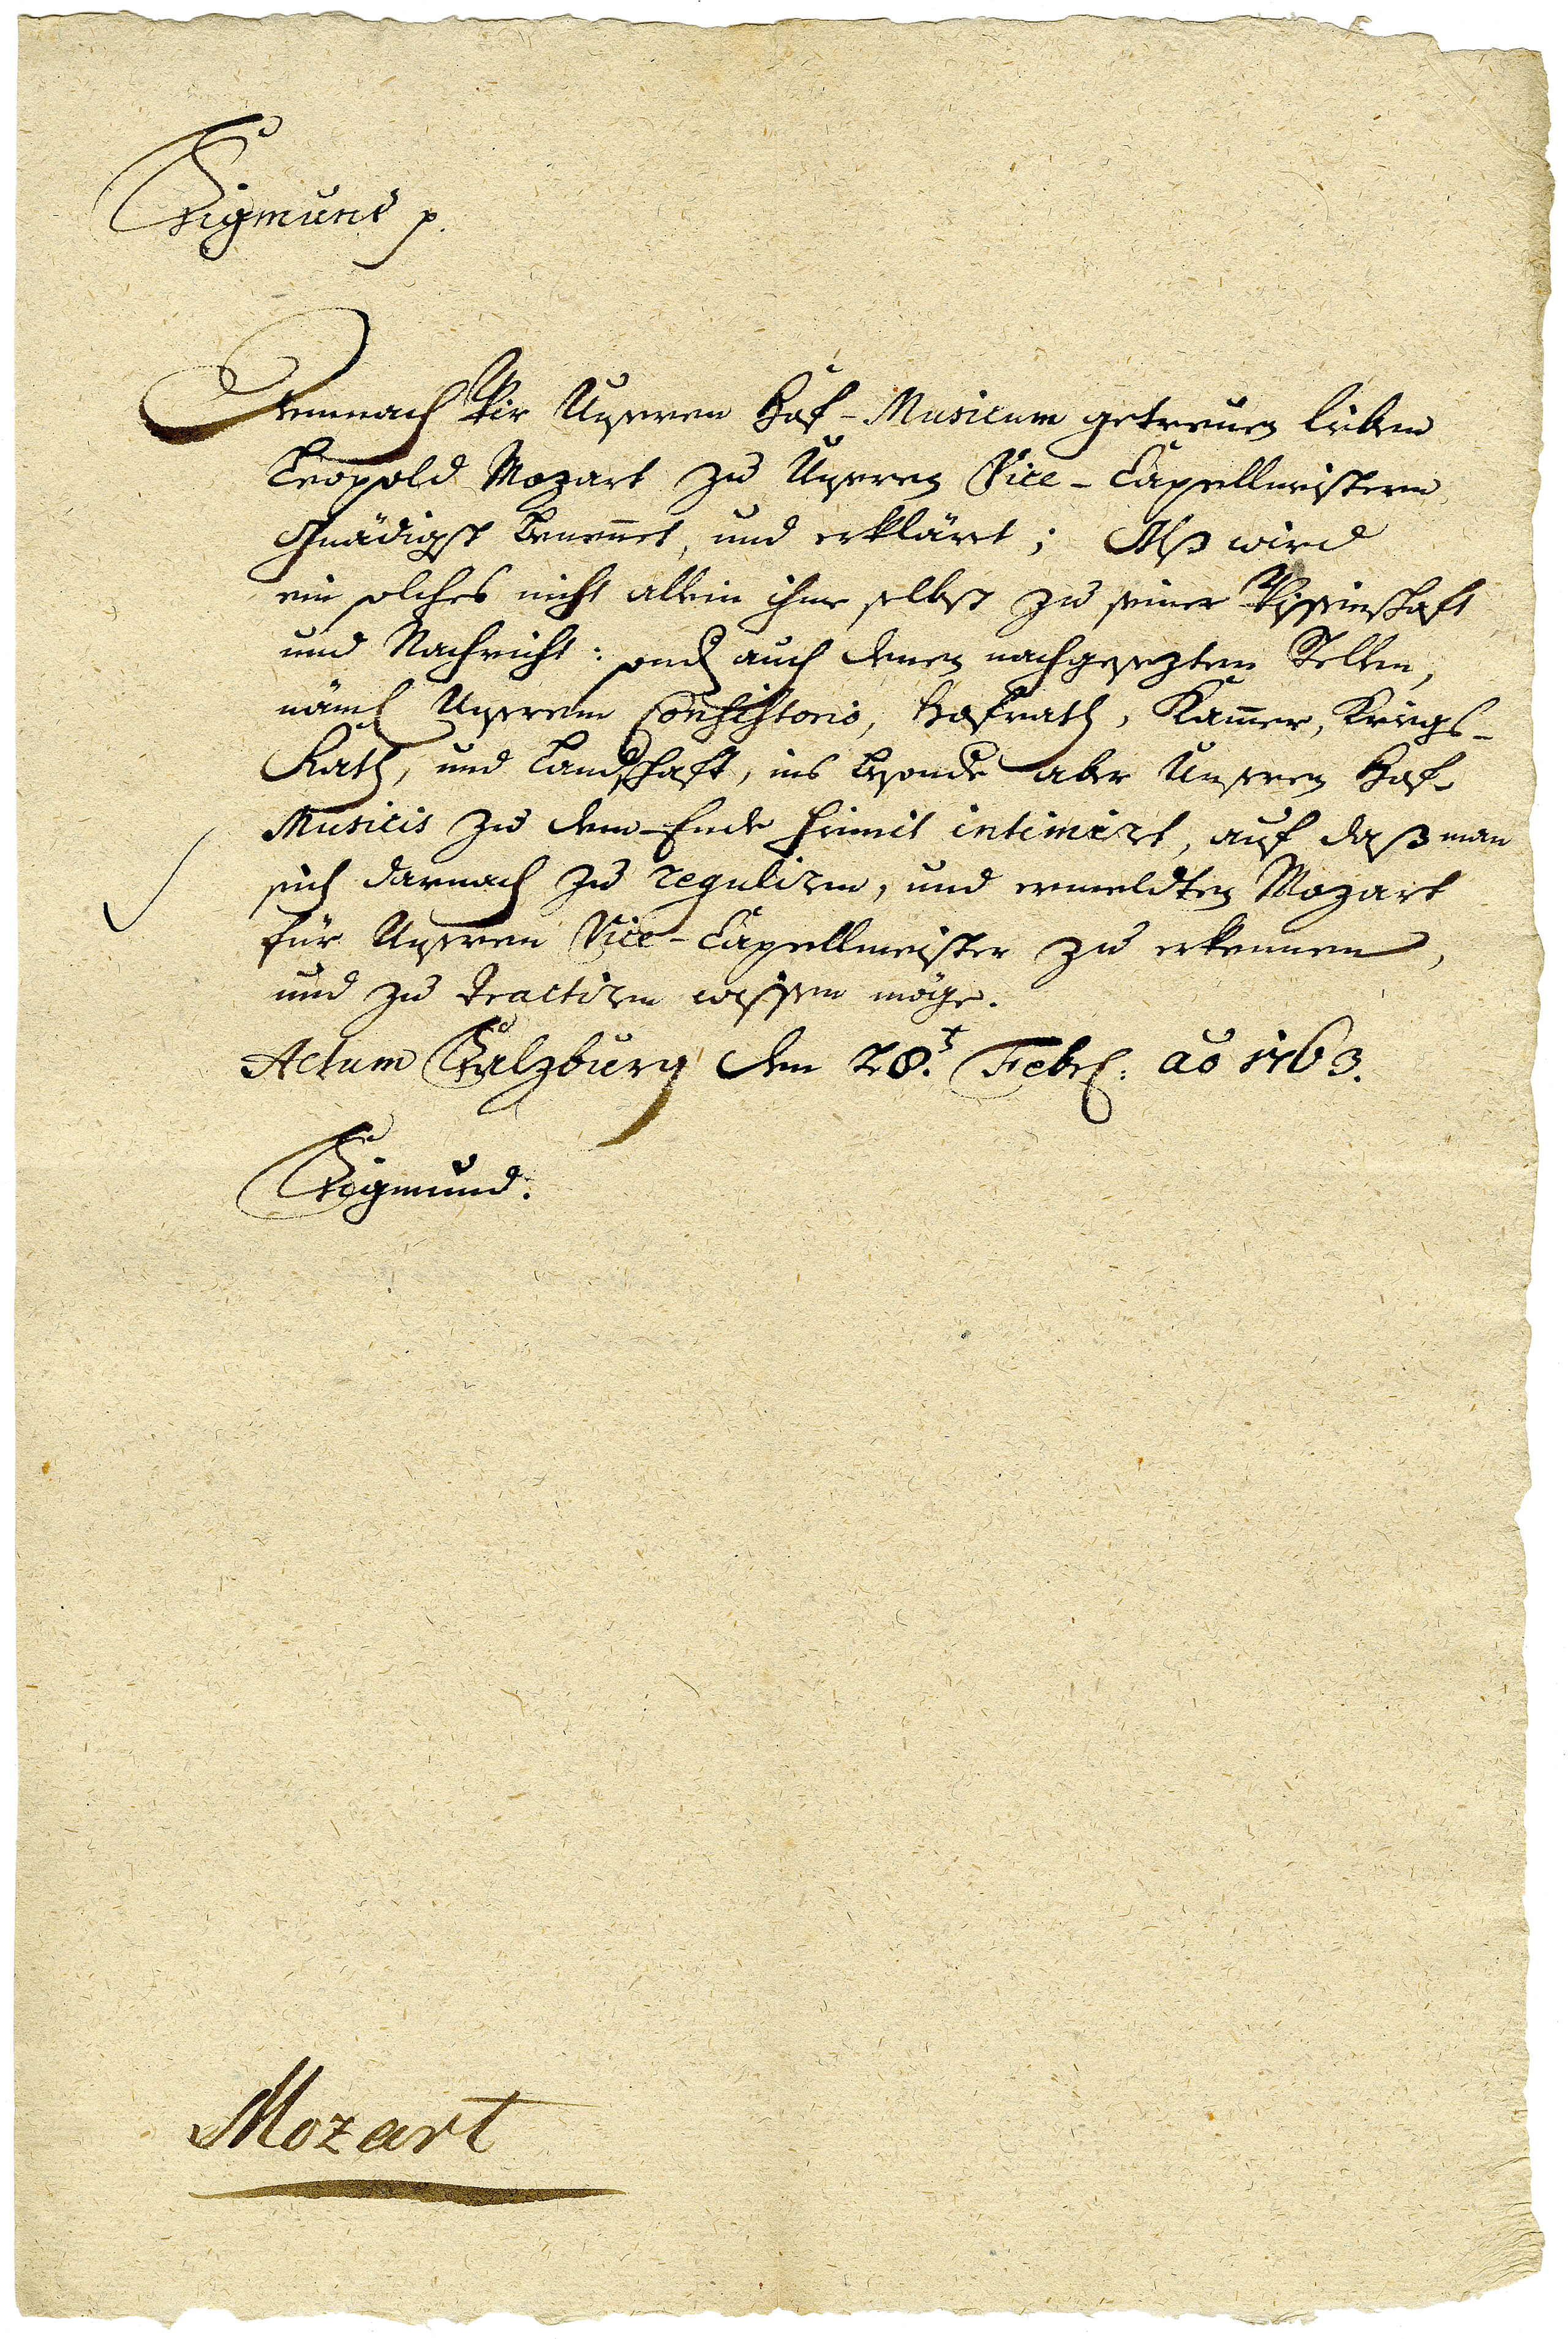 Sigmund p.
Demnach Wir Unseren Hof-Musicum getreuen lieben
Leopold Mozart zu Unseren Vice-Capellmeistern
gnädigst benennet, und erklärt; Alß wird
ein solches nicht allein ihme selbst zu seiner Wissenschaft
und Nachricht: sond auch denen nachgesezten Stellen,
näml Unserem Consistorio, Hofrath, Kammer, Kriegs-
Rath, und Landschaft, ins besonde aber Unseren Hof-
Musicis zu dem Ende hiemit intimirt, auf daß man
sich darnach zu regulirn, und ermeldten Mozart
für Unseren Vice-Capellmeister zu erkennen,
und zu tractirn wissen möge.
Actum Salzburg den 28.t Febr: ao 1763.
Sigmund.
Mozart